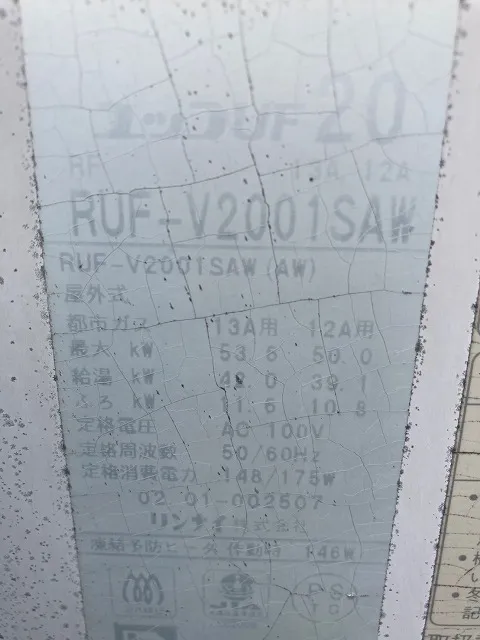 ユッコUF 20
RF 13A 12A
RUF-V2001SAW
RUF-V2001SAW(AW)
屋外式
都市ガス 13A用 12A用
最大 kW 53.6 50.0
給湯 kW 42.0 39.1
ふろ kW 11.6 10.8
定格電圧 AC 100V
定格周波数 50/60Hz
定格消費電力 148/175W
02.01-002507
リンナイ株式会社
凍結予防ヒータ作動時 146W
JIA
PS
TG